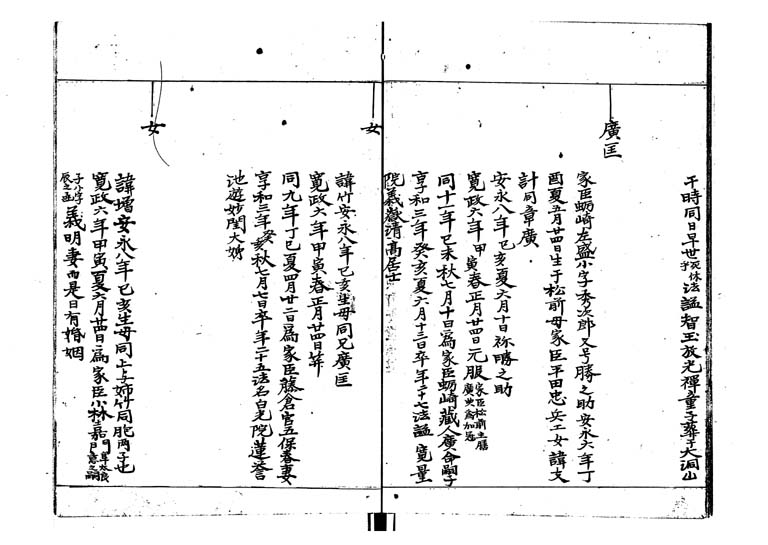 于時同日早世死休于法謚智玉放光禪童子葬于大洞山
廣匡
家臣蛎崎左盛小字秀次郎又号勝之助安永六年丁
酉夏五月廿四日生于松前母家臣平田忠兵工女諱文
計同章廣
安永八年己亥夏六月十日称勝之助
寛政六年甲寅春正月廿四日元服家臣松前主膳廣典為加冠
同十一年己未秋七月十日爲家臣蛎崎蔵人廣命嗣子
享和三年癸亥夏六月十三日卒年二十七法謚寛量
院義嶽清高居士
女
諱竹安永八年己亥生母同兄廣匡
寛政六年甲寅春正月廿四日笄
同九年丁巳夏四月廿二日爲家臣藤倉官五保春妻
享和三年癸亥秋七月七日卒年二十五法名白光院蓮誉
池遊妙閏大姉
女
諱壻安永八年己亥生母同上与姉竹同胞両子也
寛政六年甲寅夏六月廿四日爲家臣小林嘉門
子小字辰之丞義明妻而是日有婚姻